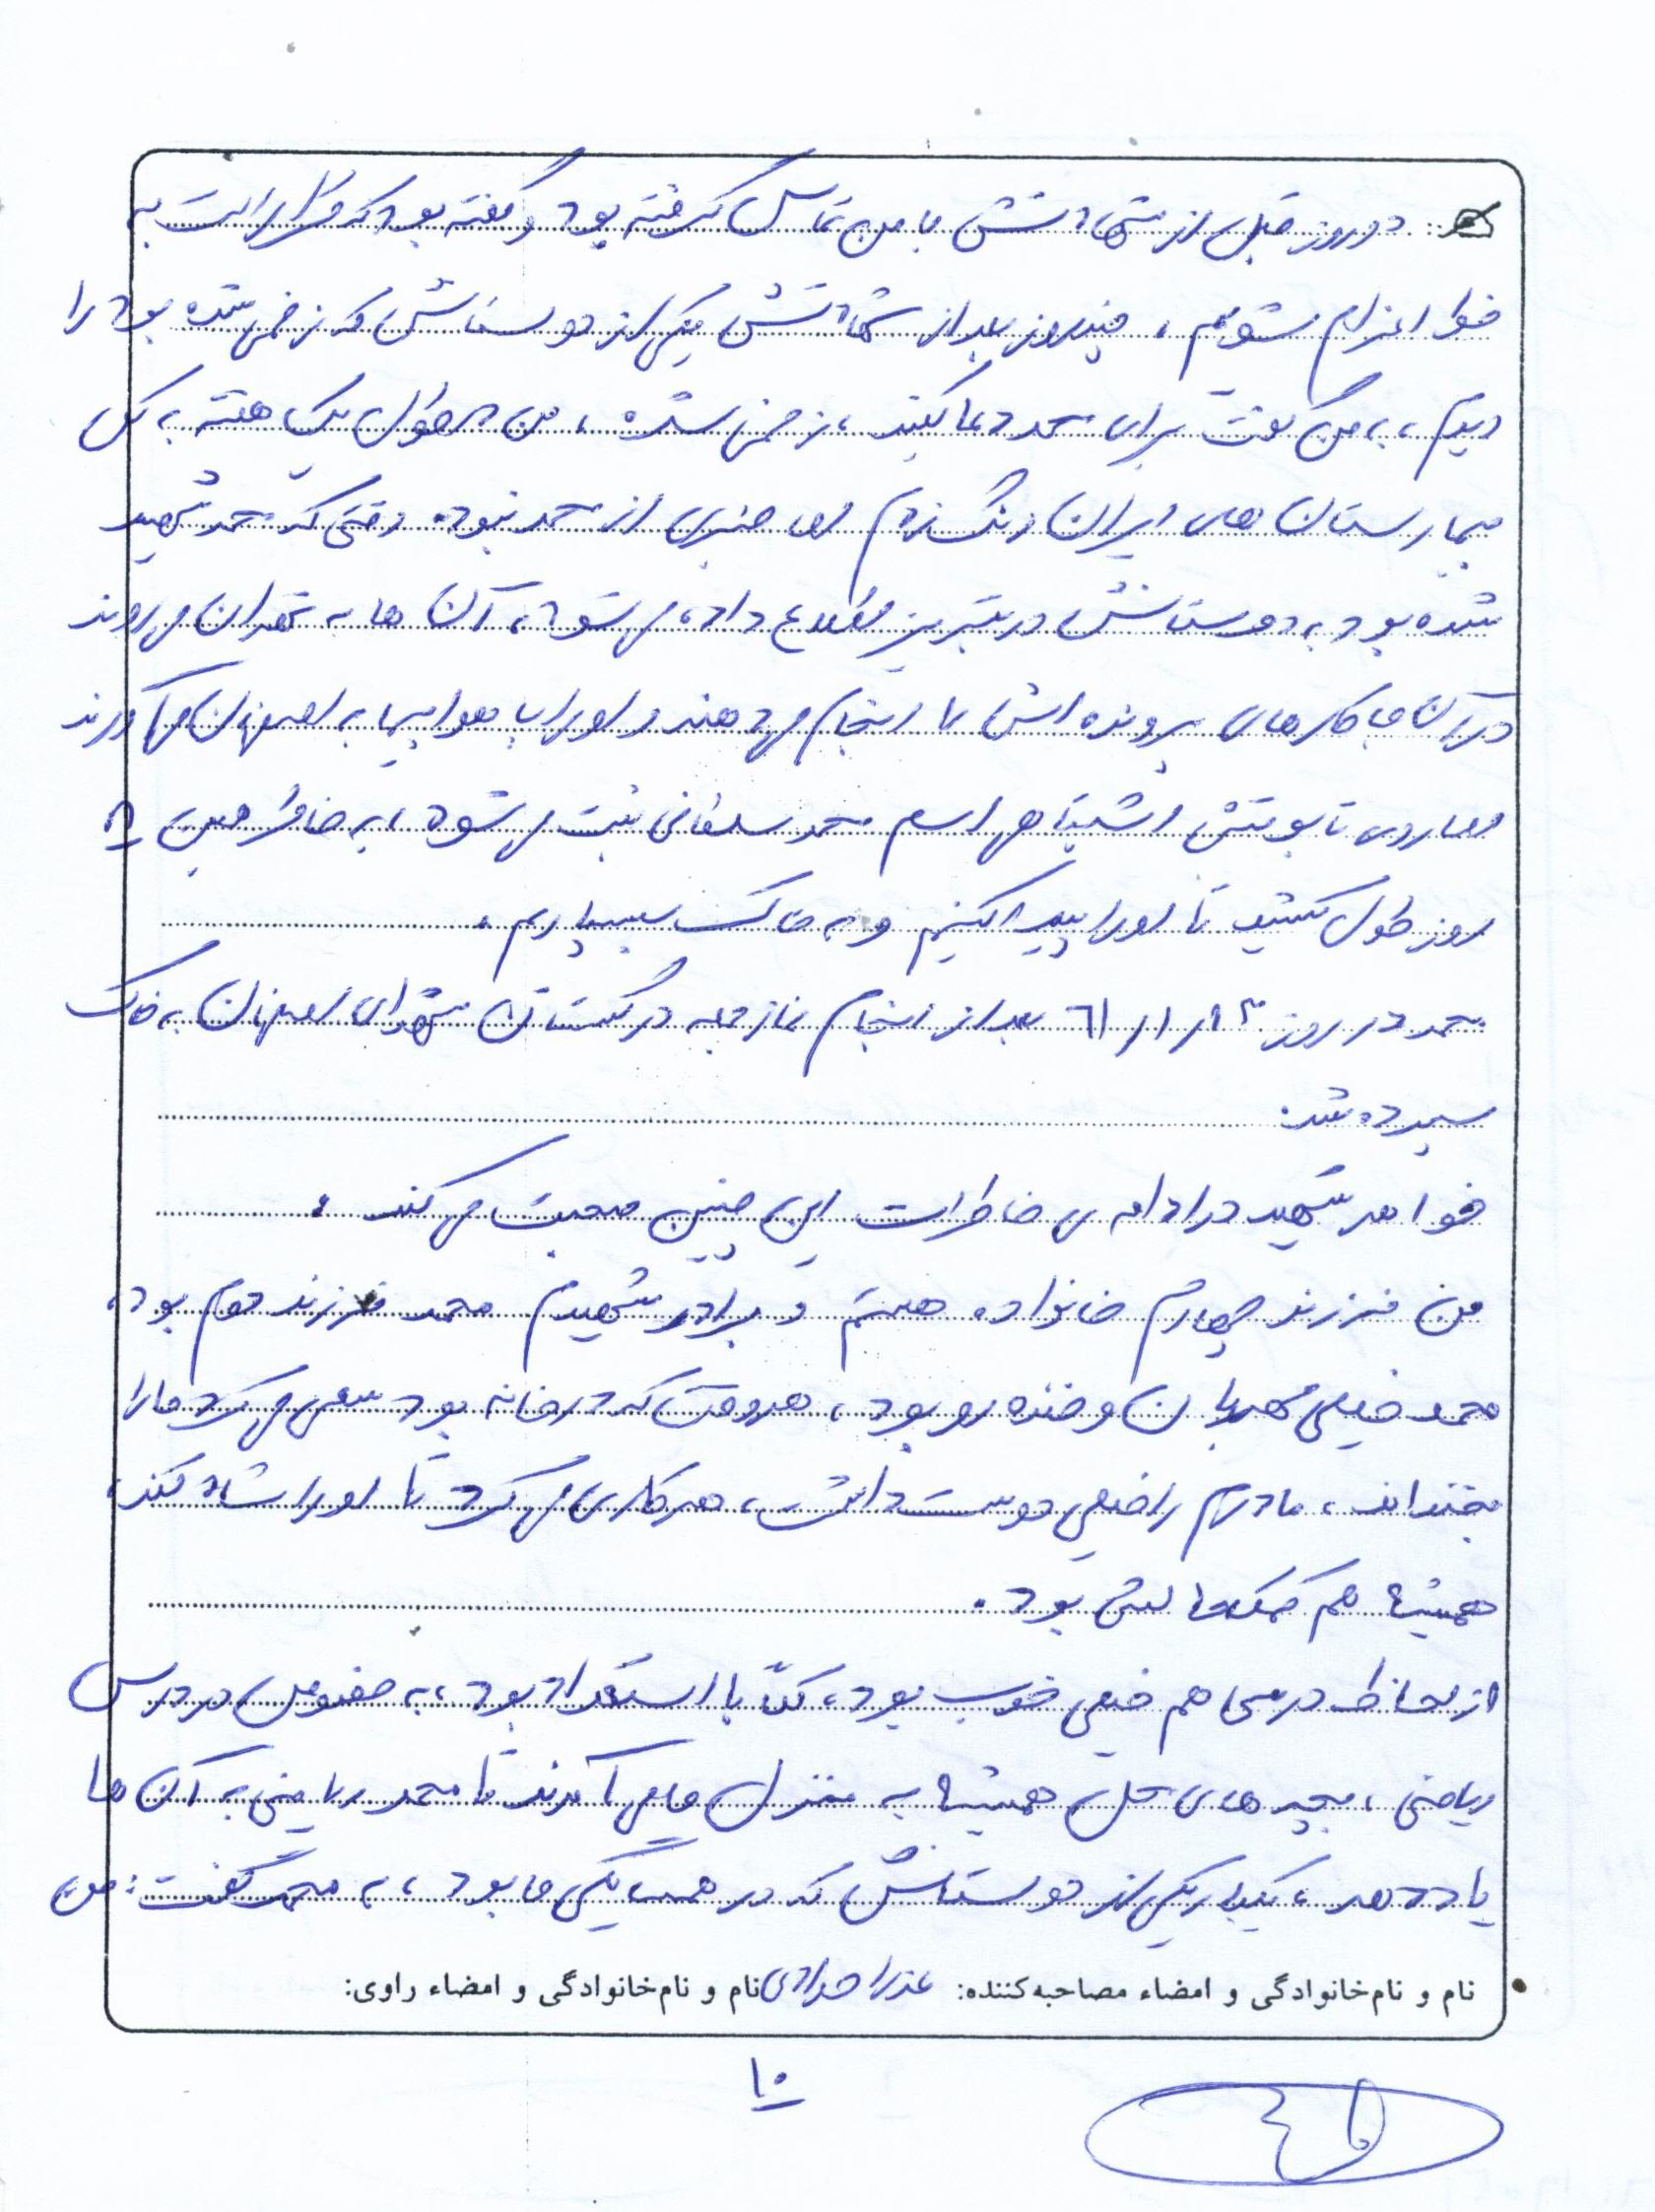 دو روز قبل از شهادتش با من تماس گرفته بود و گفته بود که قرار است به
خط اعزام شویم، چند روز بعد از شهادتش یکی از دوستانش که زخمی شده بود را
دیدم، به من گفت برای محمد دعا کنید، زخمی شده، من در طول یک هفته به کل
بیمارستان های ایران زنگ زدم اما خبری از محمد نبود. وقتی که محمد شهید
شده بود به دوستانش در تبریز اطلاع داده می شود، آن ها به تهران می روند
در آن جا کارهای پرونده اش را انجام می دهند و او را با هواپیما به اصفهان می آورند
اما روی تابوتش اشتباهی اسم محمد سلطانی ثبت می شود، به خاطر همین ۸
روز طول کشید تا او را پیدا کنیم و به خاک بسپاریم.
محمد در روز ۱۳/۱/۶۱ بعد از انجام نماز جمعه در گلستان شهدای اصفهان به خاک
سپرده شد.
خواهر شهید در ادامه ی خاطرات این چنین صحبت می کند:
من فرزند چهارم خانواده هستم و برادر شهیدم محمد فرزند دوم بود،
محمد خیلی مهربان و خنده رو بود، هر وقت که در خانه بود سعی می کرد ما را
بخنداند، مادرم را خیلی دوست داشت، هر کاری می کرد تا او را شاد کند،
همیشه هم کمک حالش بود.
از لحاظ درسی هم خیلی خوب بود، کلّا با استعداد بود، به خصوص در درس
ریاضی، بچه های محل همیشه به منزل ما می آمدند تا محمد ریاضی به آن ها
یاد دهد، یکبار یکی از دوستانش که در همسایگی ما بود، به محمد گفت: من
نام و نام‌خانوادگی و امضاء مصاحبه‌کننده: عذرا مرادی نام و نام‌خانوادگی و امضاء راوی:
۱۰